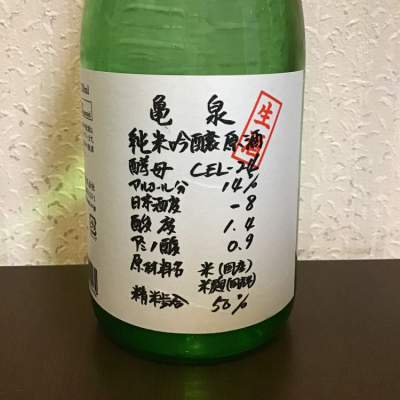 亀泉
生酒
純米吟醸原酒
酵母 CEL-24
アルコール分 14%
日本酒度 -8
酸度 1.4
アミノ酸 0.9
原材料名 米(国産)
米麹(国産)
精米歩合 50%